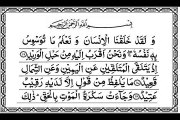 بِسْمِ اللَّهِ الرَّحْمَٰنِ الرَّحِيمِ
وَلَقَدْ خَلَقْنَا الْاِنْسَانَ وَنَعْلَمُ مَا تُوَسْوِسُ
بِهٖ نَفْسُهٗ ۖ وَنَحْنُ اَقْرَبُ اِلَيْهِ مِنْ حَبْلِ الْوَرِيْدِ
اِذْ يَتَلَقَّى الْمُتَلَقِّيٰنِ عَنِ الْيَمِيْنِ وَعَنِ الشِّمَالِ
قَعِيْدٌ مَا يَلْفِظُ مِنْ قَوْلٍ اِلَّا لَدَيْهِ رَقِيْبٌ
عَتِيْدٌ وَجَآءَتْ سَكْرَةُ الْمَوْتِ بِالْحَقِّ ۖ ذٰلِكَ